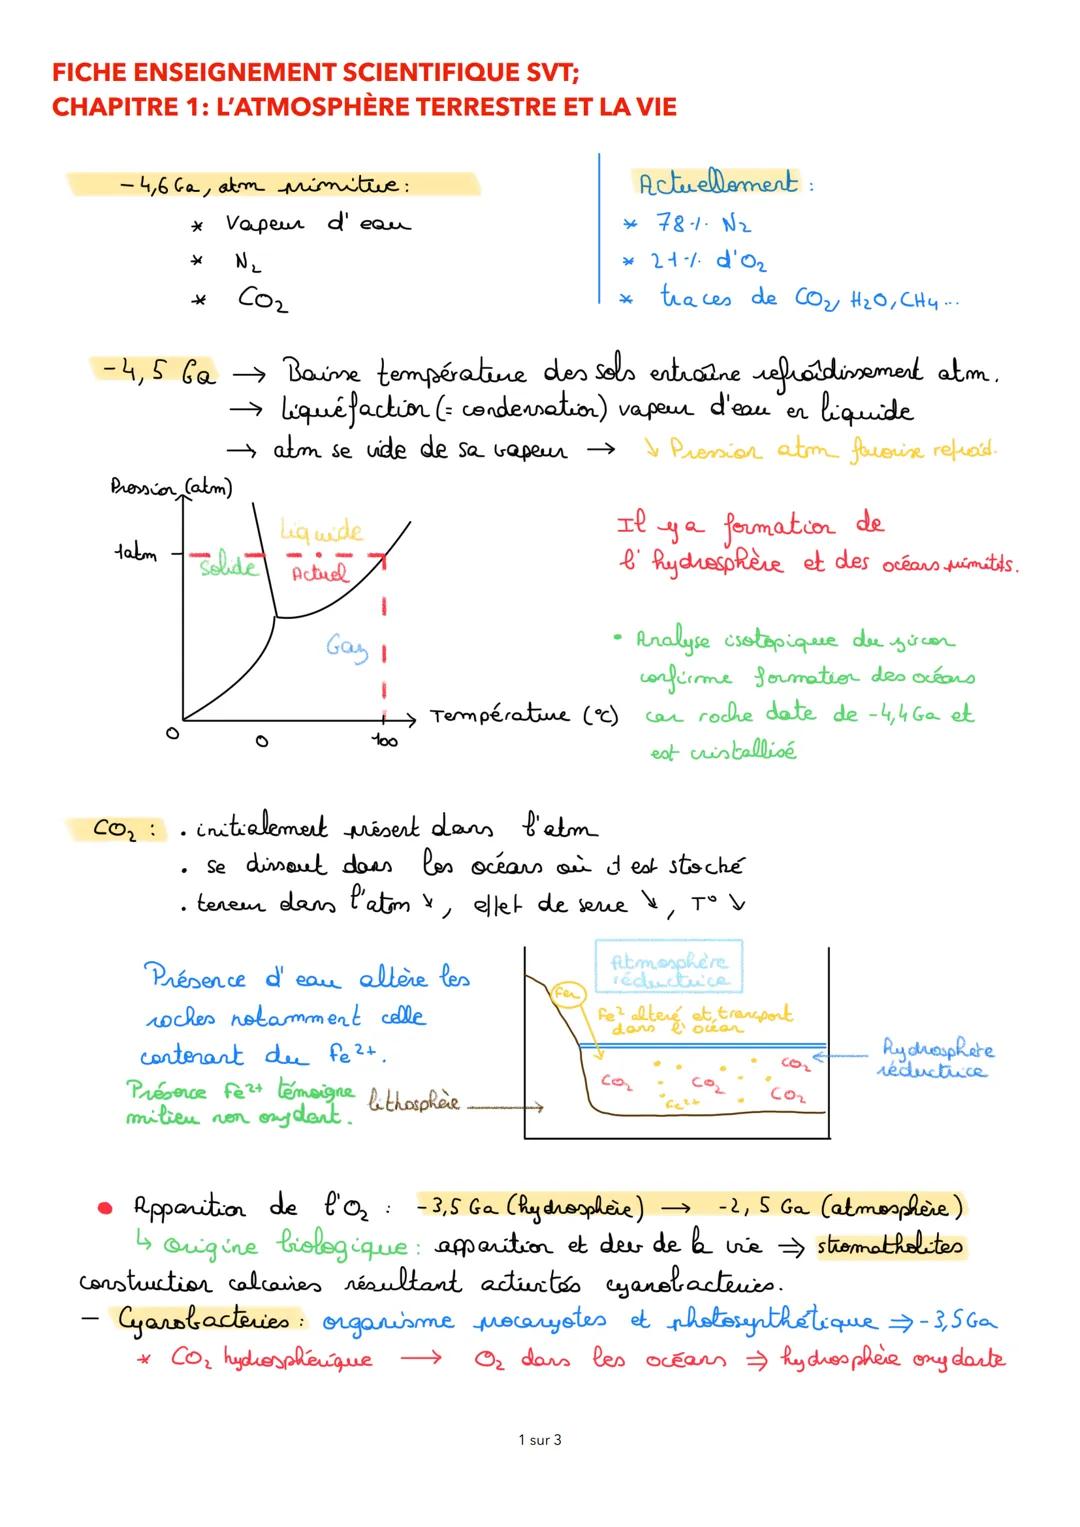 FICHE ENSEIGNEMENT SCIENTIFIQUE SVT;
CHAPITRE 1: L'ATMOSPHÈRE TERRESTRE ET LA VIE
-4,6 Ga, atm primitive :
* Vapeur d'eau
* N₂
* CO₂
Actuellement :
* 78% N₂
* 21% d'O₂
* traces de CO₂, H₂O, CH₄...
-4,5 Ga → Baisse température des sols entraîne refroîdissement atm.
→ liquéfaction (= condensation) vapeur d'eau en liquide
→ atm se vide de sa vapeur → ↘ Pression atm favorise refroid.
Pression (atm)
1atm
Liquide
Solide
Actuel
Gaz
Température (°C)
0
0
100
Il y a formation de
l'hydrosphère et des océans primitifs.
• Analyse isotopique du zircon
confirme formation des océans
car roche date de -4,4 Ga et
est cristallisé
CO₂ : . initialement présent dans l'atm
. se dissout dans les océans où il est stocké
. teneur dans l'atm ↘, effet de serre ↘, T° ↘
Présence d'eau altère les
roches notamment celle
contenant du Fe²⁺.
Présence Fe²⁺ témoigne
milieu non oxydant.
lithosphère
Atmosphère
réductrice
Fer
Fe² alteré et transport
dans l'océan
CO₂
CO₂
CO₂
CO₂
Fe²⁺
Hydrosphère
réductrice
• Apparition de l'O₂ : -3,5 Ga (hydrosphère) → -2,5 Ga (atmosphère)
↳ Origine biologique : apparition et dev de la vie ⇒ stromatholites
construction calcaires résultant activités cyanobacteries.
- Cyanobactéries : organisme procaryotes et photosynthétique ⇒ -3,5 Ga
* CO₂ hydrosphérique → O₂ dans les océans ⇒ hydrosphère oxydante
1 sur 3